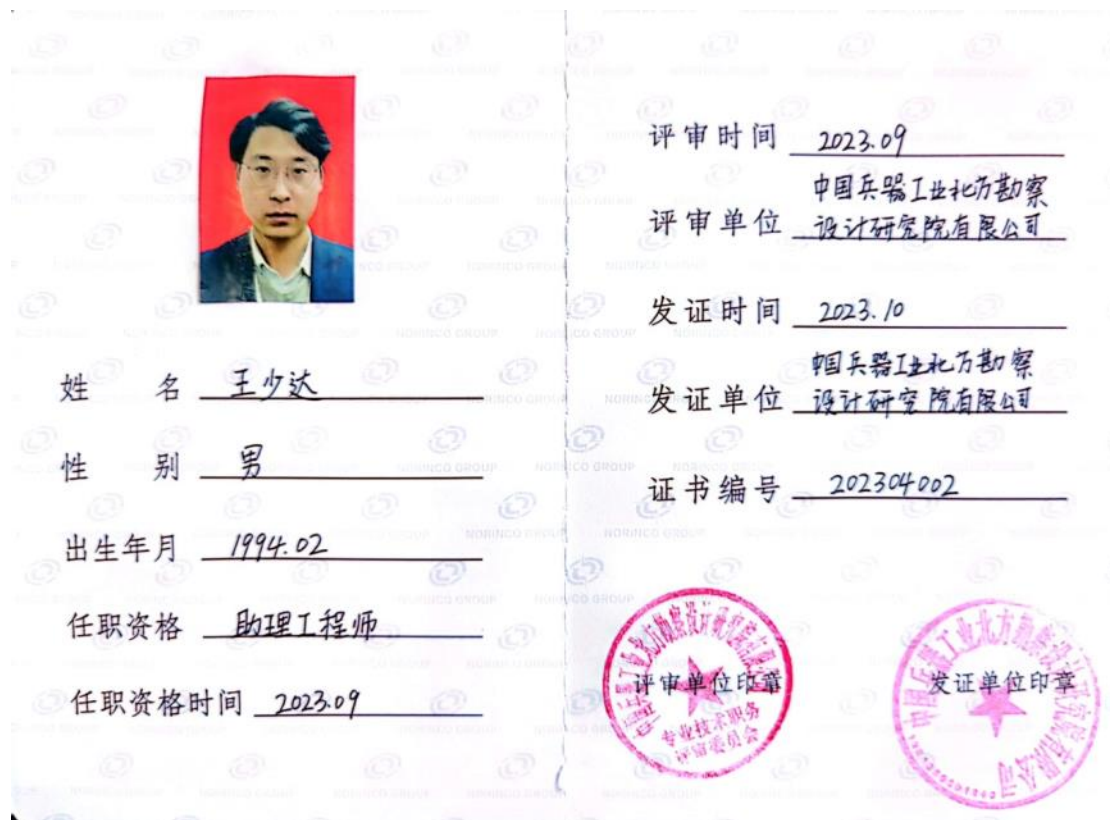 姓 名 王少达
性 别 男
出生年月 1994.02
任职资格 助理工程师
任职资格时间 2023.09
评审时间 2023.09
评审单位 中国兵器工业北方勘察
设计研究院有限公司
发证时间 2023.10
发证单位 中国兵器工业北方勘察
设计研究院有限公司
证书编号 202304002
中国兵器工业北方勘察设计研究院有限公司
评审单位印章
专业技术职务
评审委员会
中国兵器工业北方勘察设计研究院有限公司
发证单位印章
NORINCO GROUP